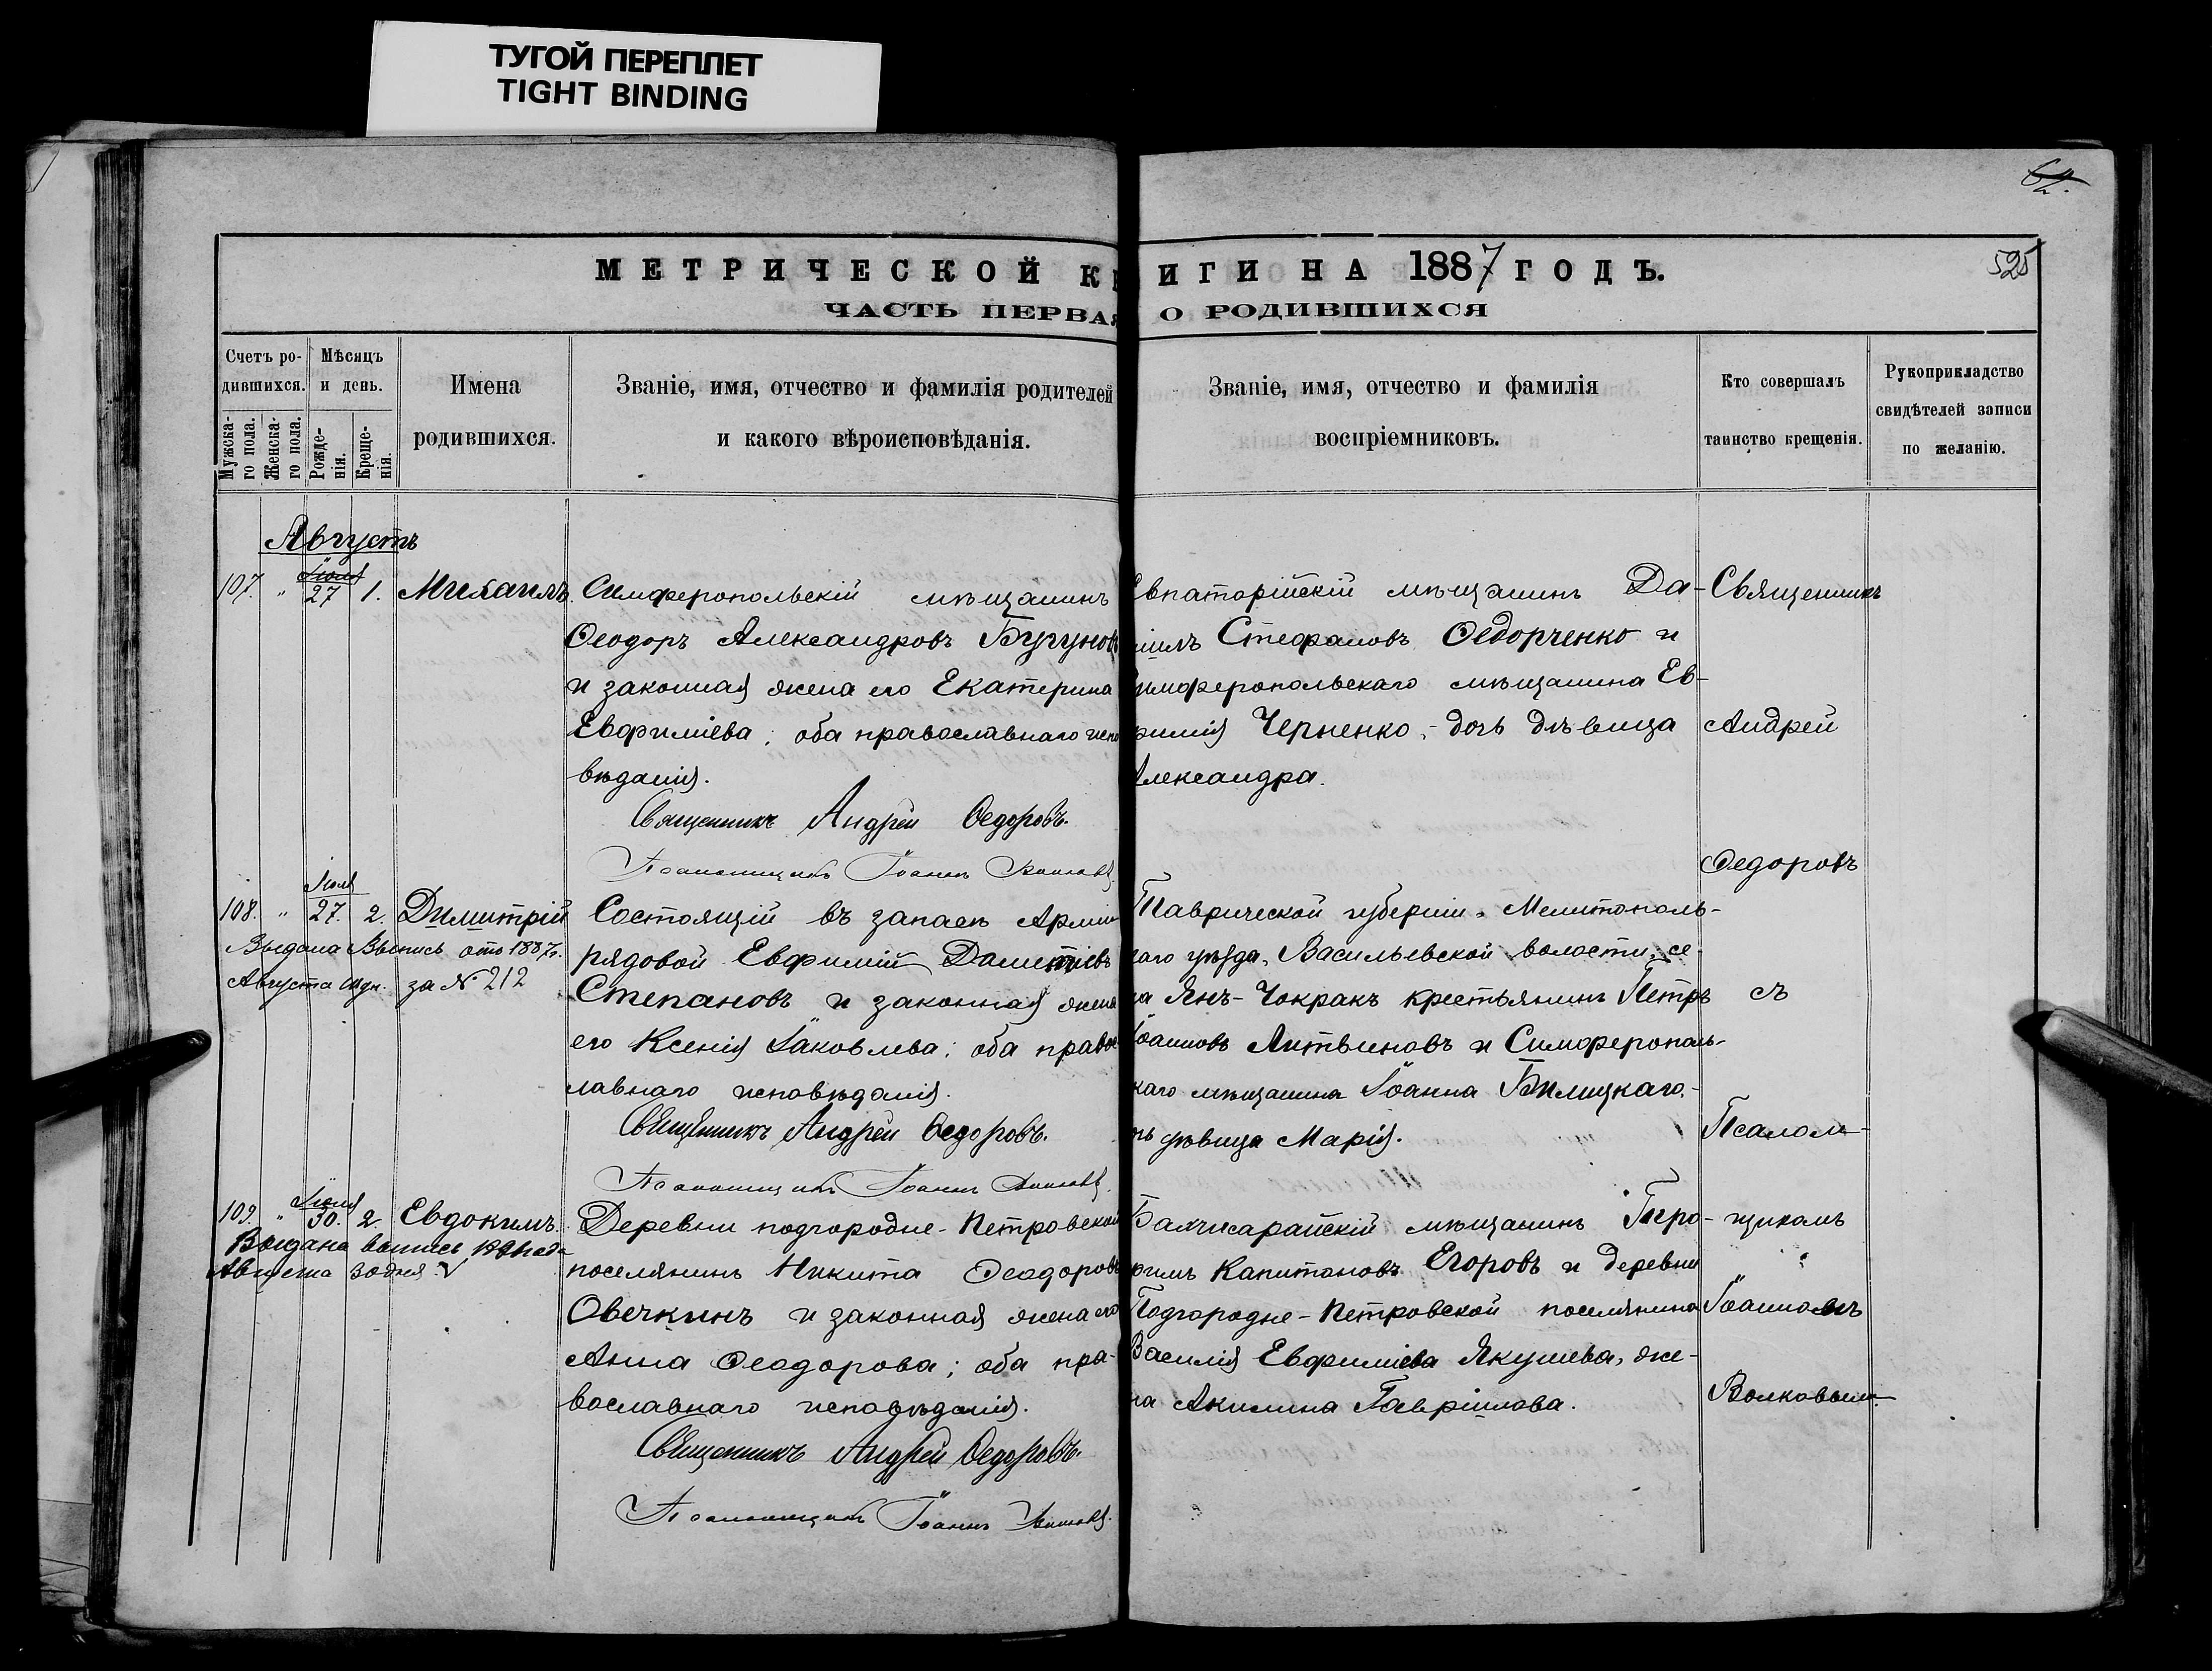 ТУГОЙ ПЕРЕПЛЕТ
TIGHT BINDING
62.
525
МЕТРИЧЕСКОЙ К ИГИ НА 1887 ГОДЪ.
ЧАСТЬ ПЕРВАЯ О РОДИВШИХСЯ
Счетъ ро-
дившихся.
Мужска-
го пола.
Женска-
го пола.
Мѣсяцъ
и день.
Рожде-
нія.
Креще-
нія.
Имена
родившихся.
Званіе, имя, отчество и фамилія родителей
и какого вѣроисповѣданія.
Званіе, имя, отчество и фамилія
воспріемниковъ.
Кто совершалъ
таинство крещенія.
Рукоприкладство
свидѣтелей записи
по желанію.
Августъ
Іюля
107. " 27 1. Михаилъ.
Симферопольскій мѣщанинъ
Ѳеодоръ Александровъ Бугуновъ
и законная жена его Екатерина
Евфиміева; оба православнаго испо
вѣданія.
Священникъ Андрей Ѳедоровъ.
Псаломщикъ Іоаннъ Волковъ.
Евпаторійскій мѣщанинъ Да-
ніилъ Стефановъ Ѳедорченко и
Симферопольскаго мѣщанина Ев-
фимія Черненко, - дочь дѣвица
Александра.
Священникъ
Андрей
Ѳедоровъ
съ
Псалом-
щикомъ
Іоанномъ
Волковым.
Іюля
108. " 27. 2. Димитрій
Выдана Выпись отъ 1887г.
Августа дн. за № 212
Состоящій въ запасѣ Арміи
рядовой Евфимій Даментіевъ
Степановъ и законная жена
его Ксенія Іаковлева; оба правос
лавнаго исповѣданія.
Священникъ Андрей Ѳедоровъ.
Псаломщикъ Іоаннъ Волковъ.
Таврической губерніи, Мелитополь-
каго уѣзда, Васильевской волости, се-
ла Янъ-Чокракъ крестьянинъ Петръ
Іоанновъ Литвиновъ и Симферополь-
каго мѣщанина Іоанна Билицкаго,-
чь дѣвица Марія.
Іюля
109. " 30. 2. Евдокимъ.
Выдана выпись
Августа 30 дня. V
Деревни подгородне-Петровской
поселянинъ Никита Ѳеодоровъ
Овечкинъ и законная жена его
Анна Ѳеодорова; оба пра-
вославнаго исповѣданія.
Священникъ Андрей Ѳедоровъ.
Псаломщикъ Іоаннъ Волковъ.
Бахчисарайскій мѣщанинъ Пиро-
Капитоновъ Егоровъ и деревни
Подгородне-Петровской поселянина
Василія Евфиміева Якушева, же-
на Акилина Гавріилова.